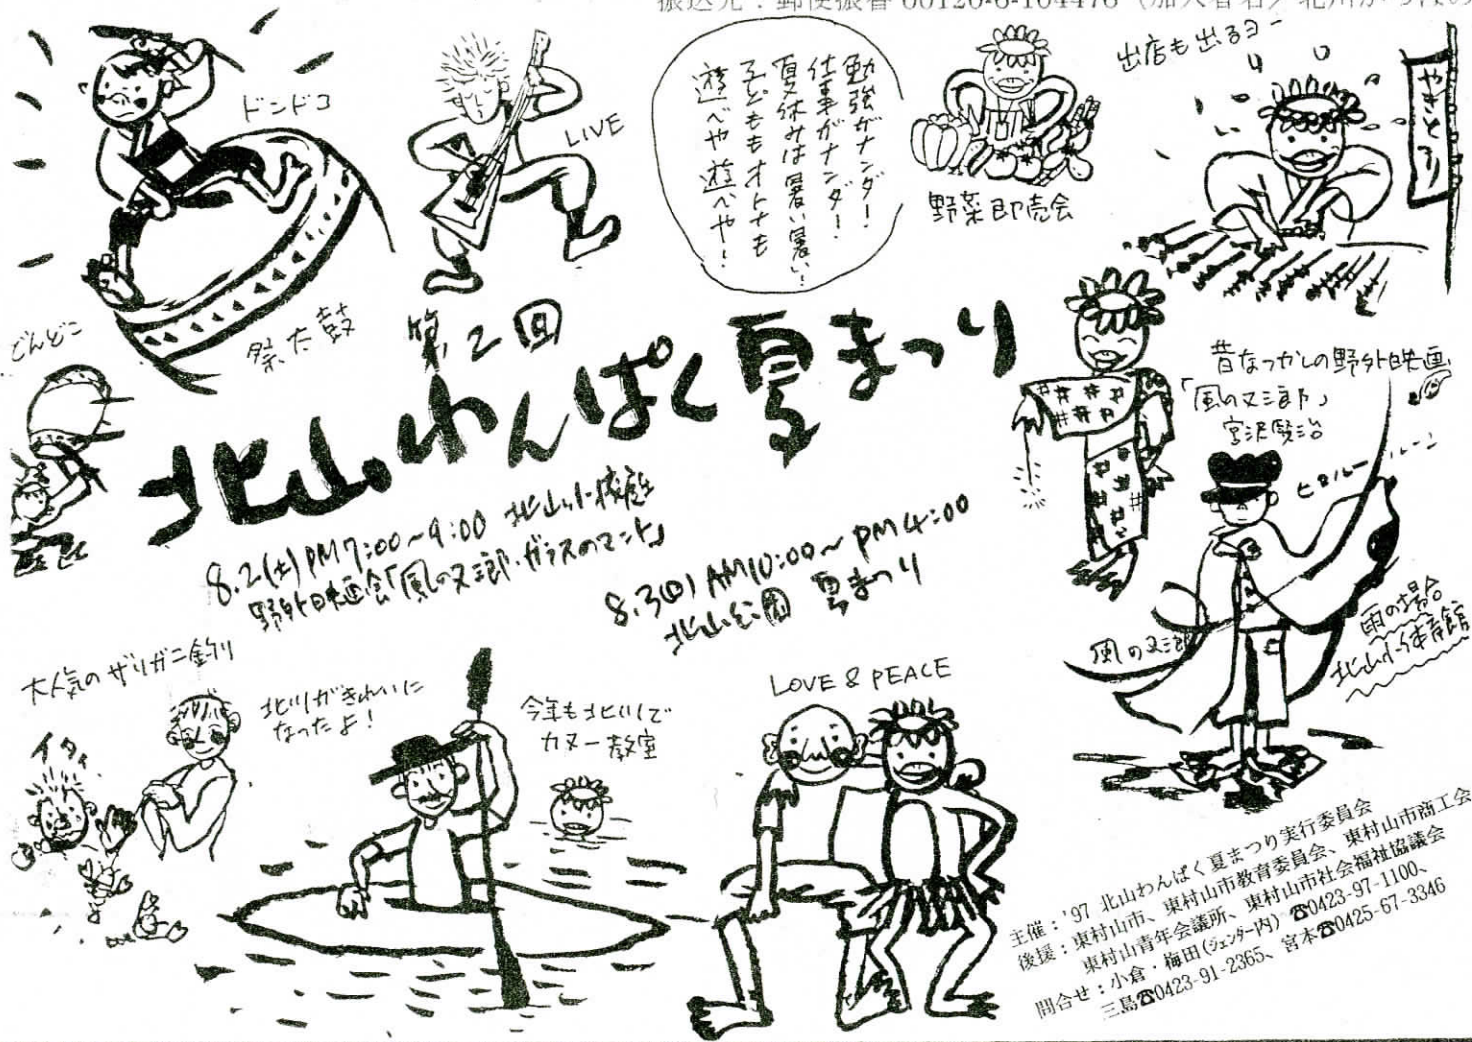 振込先：郵便振替 00120-6-104476（加入者名）北川かっぱの
ドンドコ
祭太鼓
どんどこ
LIVE
勉強がナンダー！
仕事がナンダー！
夏休みは暑い暑い！
子どももオトナも
遊べや遊べや！
野菜即売会
出店も出るヨー
やきとり
第2回
北山わんぱく夏まつり
8.2(土)PM7:00〜9:00 北山小校庭
野外映画会「風の又三郎・ガラスのマント」
8.3(日)AM10:00〜PM4:00
北山公園 夏まつり
昔なつかしの野外映画
「風の又三郎」
宮沢賢治
ヒュルールルーン
風の又三郎
雨の場合
北山小体育館
大人気のザリガニ釣り
イタイ
北川がきれいに
なったよ！
今年も北川で
カヌー教室
LOVE & PEACE
主催：'97 北山わんぱく夏まつり実行委員会
後援：東村山市、東村山市教育委員会、東村山市商工会
東村山青年会議所、東村山市社会福祉協議会
問合せ：小倉・梅田（ジェンダー内）☎0423-97-1100、
三島☎0423-91-2365、宮本☎0425-67-3346